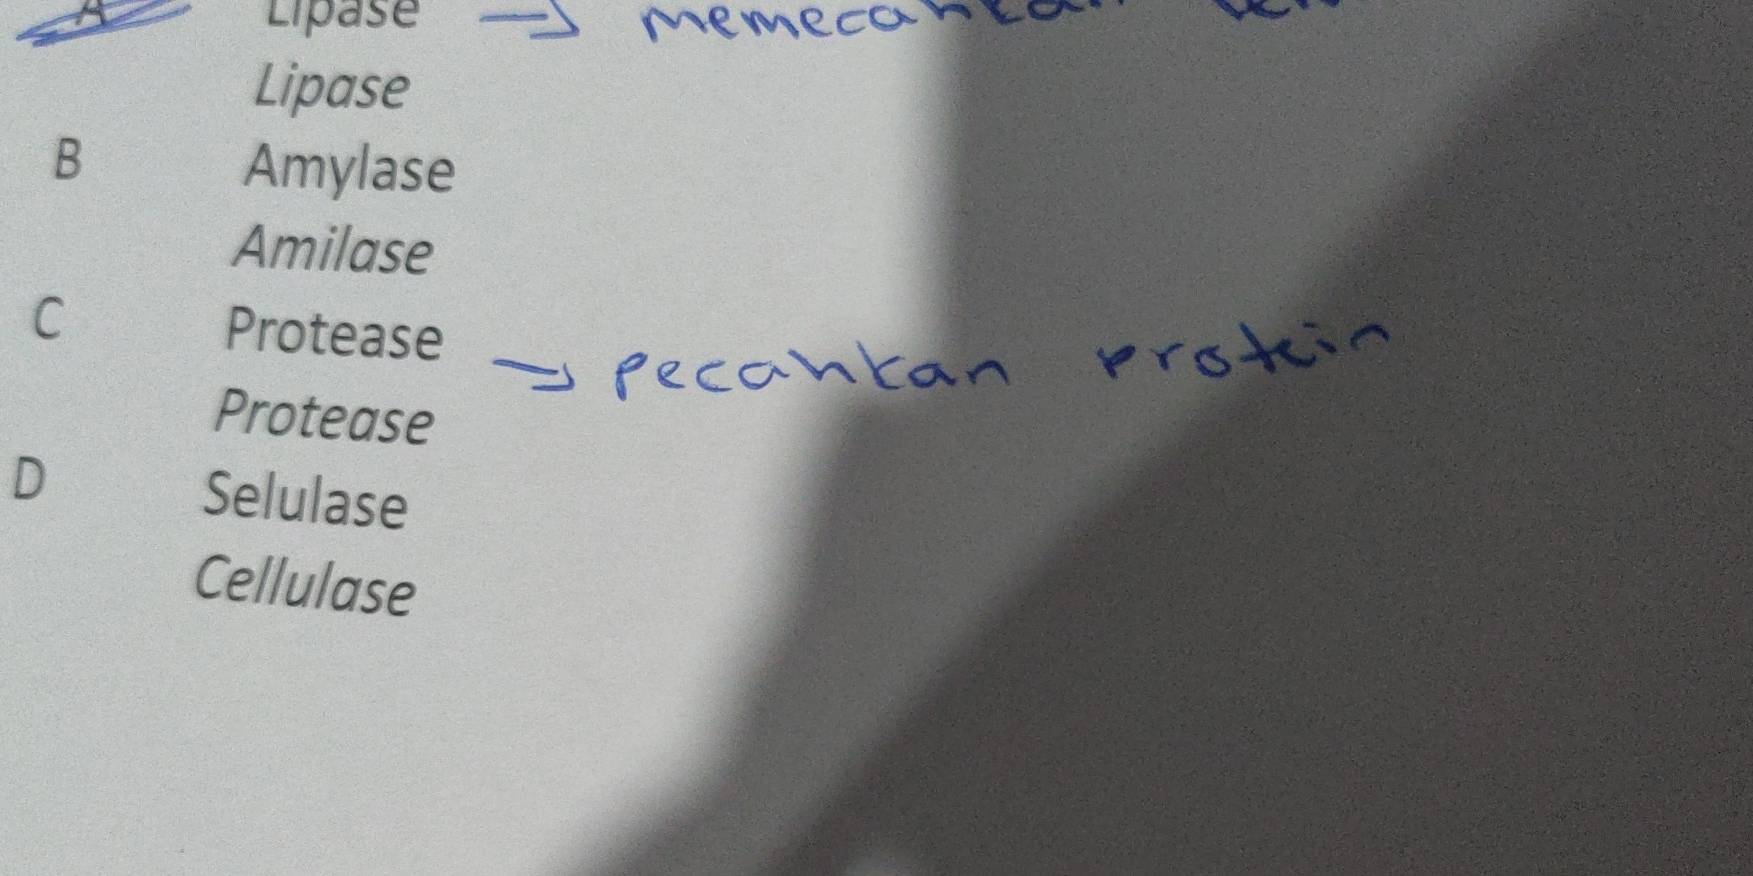 A Lipase → memecahkan
Lipase
B Amylase
Amilase
C Protease → pecahkan protein
Protease
D Selulase
Cellulase